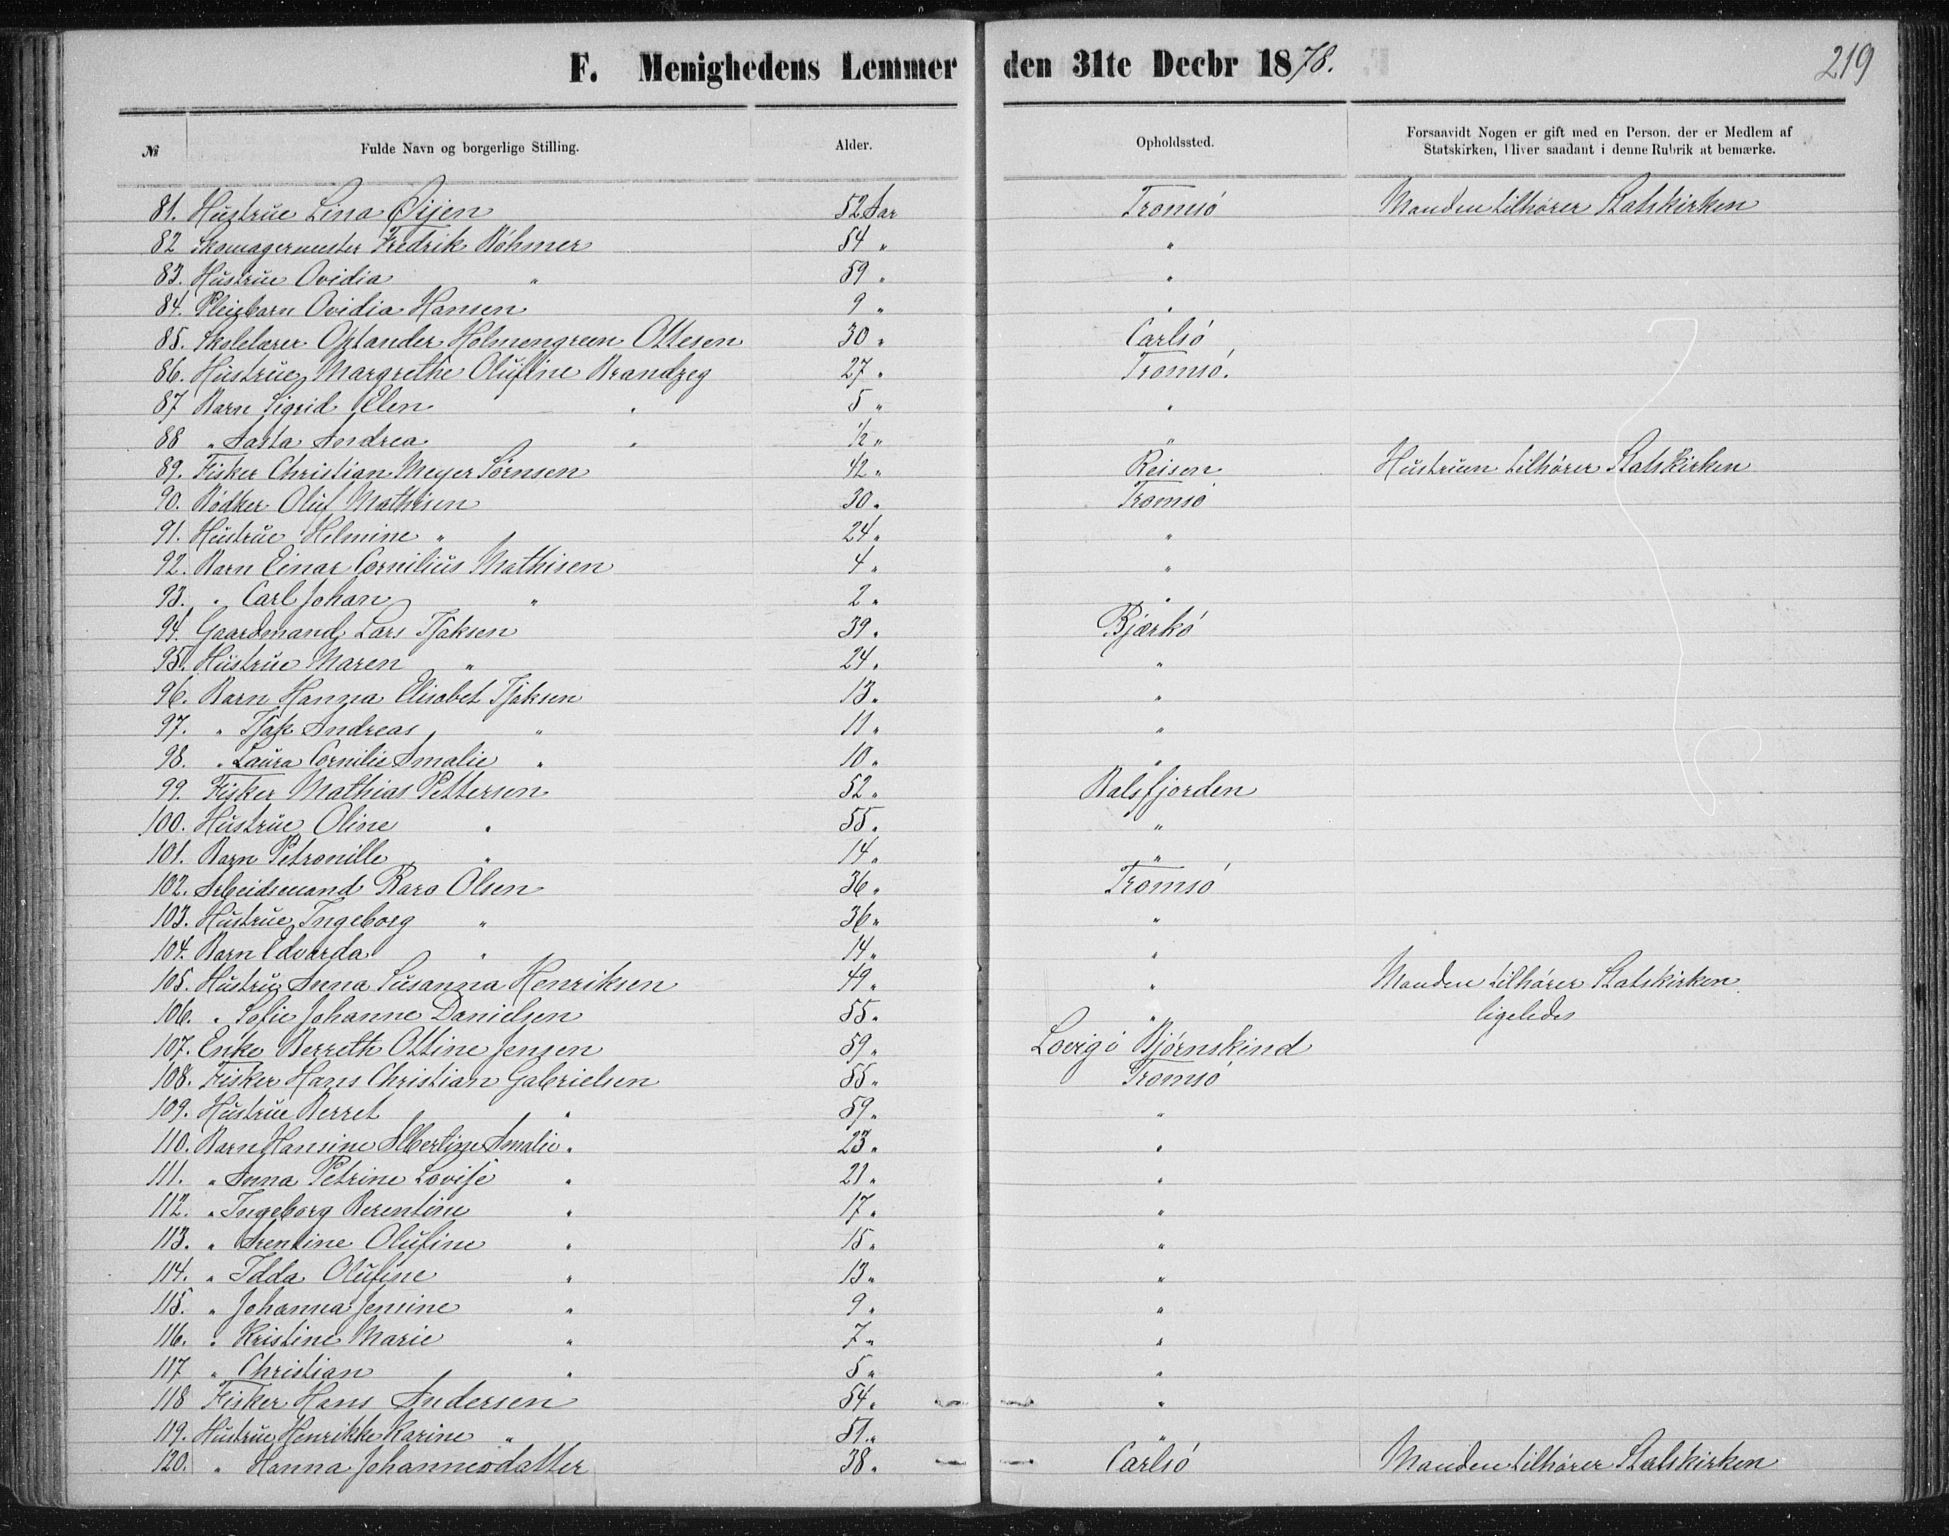 F. Menighedens Lemmer den 31te Decbr 1878. 219
№ Fulde Navn og borgerlige Stilling. Alder. Opholdssted. Forsaavidt Nogen er gift med en Person, der er Medlem af
Statskirken, bliver saadant i denne Rubrik at bemærke.
81. Hustrue Lina Øijen 52 Aar Tromsö Manden tilhører Statskirken
82 Skomagermester Fredrik Bøhmer 54 " "
83. Hustrue Ovidia " 59 " "
84. Pleiebarn Ovidia Hansen 9 " "
85. Skolelærer Holmengreen Ottesen 30 " Carlsö
86. Hustrue Margrethe Olufine Brandzeg 27 " Tromsö.
87 Barn Sigrid Elen " 5 " "
88 " Aasta Andrea " 1/2 " "
89. Fisker Christian Meyer Sørnsen 42 " Reisen Hustruen tilhører Statskirken
90. Bødker Oluf Mathisen 30 " Tromsö
91. Hustrue Helmine " 24 " "
92. Barn Einar Cornilius Mathisen 4 " "
93. " Carl Johan " 2 " "
94. Gaardmand Lars Tjaksen 39 " Bjærkö
95. Hustrue Maren " 24 " "
96. Barn Hanna Elisabet Tjaksen 13 " "
97. " Tjak Andreas " 11 " "
98. " Laura Cornilie Amalie " 10 " "
99. Fisker Mathias Pettersen 52 " Balsfjorden
100. Hustrue Oline " 55 " "
101. Barn Petronille " 14 " "
102. Arbeidsmand Baro Olsen 36 " Tromsö
103. Hustrue Ingeborg " 36 " "
104. Barn Edvarda " 14 " "
105. Hustru Anna Susanna Henriksen 49 " " Manden tilhører Statskirken
106. " Sofie Johanne Danielsen 55 " " ligeledes
107. Enke Berreth Ottine Jensen 59 " Bjørnskind
108. Fisker Hans Christian Gabrielsen 55 " Tromsö
109. Hustrue Berret " 59 " "
110. Barn Hansine Albertine Amalie " 23 " "
111. " Anna Petrine Lovise " 21 " "
112. " Ingeborg Berentine " 17 " "
113. " Arentine Olufine " 15 " "
114. " Idda Olufine " 13 " "
115. " Johanna Jensine " 9 " "
116. " Kristine Marie " 7 " "
117 " Christian " 5 " "
118 Fisker Hans Andersen 54 " "
119. Hustrue Henrikke Karine " 51 " "
120. " Hanna Johannesdatter 38 " Carlsö Manden tilhører Statskirken